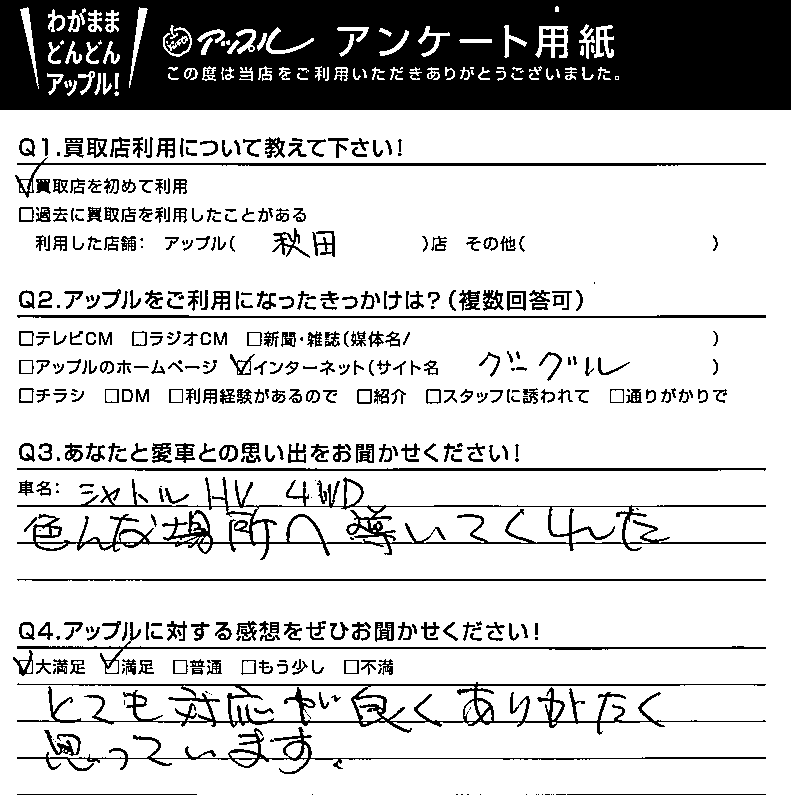 わがまま
どんどん
アップル!
アップル アンケート用紙
この度は当店をご利用いただきありがとうございました。
Q1.買取店利用について教えて下さい!
☑買取店を初めて利用
□過去に買取店を利用したことがある
利用した店舗: アップル( 秋田 )店 その他( )
Q2.アップルをご利用になったきっかけは?(複数回答可)
□テレビCM □ラジオCM □新聞・雑誌(媒体名/ )
□アップルのホームページ ☑インターネット(サイト名 グーグル )
□チラシ □DM □利用経験があるので □紹介 □スタッフに誘われて □通りがかりで
Q3.あなたと愛車との思い出をお聞かせください!
車名: シャトル HV 4WD
色んな場所へ導いてくれた
Q4.アップルに対する感想をぜひお聞かせください!
☑大満足 ☑満足 □普通 □もう少し □不満
とても対応が良くありがたく
思っています。